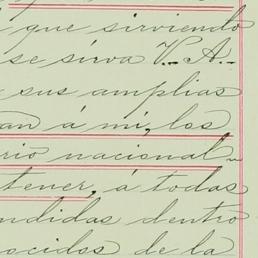 que sirviendo
se sirva V. A.
sus amplias
á mi, los
nacional
tener, á todas
ndidas dentro
ocidos de la